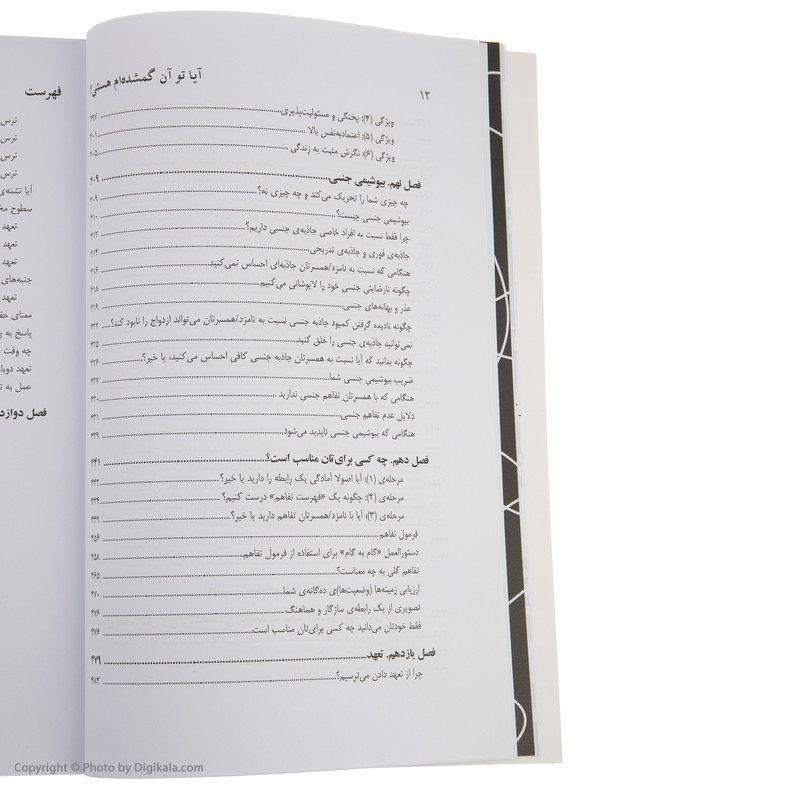 ۱۲
آیا تو آن گمشده‌ام هستی؟
ویژگی (۴): پختگی و مسئولیت‌پذیری ۳۹۷
ویژگی (۵): اعتمادبه‌نفس بالا ۴۰۱
ویژگی (۶): نگرش مثبت به زندگی ۴۰۵
فصل نهم. بیوشیمی جنسی ۴۰۹
چه چیزی شما را تحریک می‌کند و چه چیزی نه؟ ۴۰۹
بیوشیمی جنسی چیست؟ ۴۱۰
چرا فقط نسبت به افراد خاصی جاذبه‌ی جنسی داریم؟ ۴۱۲
جاذبه‌ی فوری و جاذبه‌ی تدریجی ۴۱۴
هنگامی که نسبت به نامزد/همسرتان جاذبه‌ای احساس نمی‌کنید ۴۱۶
چگونه نارضایتی جنسی خود را لاپوشانی می‌کنیم ۴۱۸
عذر و بهانه‌های جنسی ۴۱۹
چگونه نادیده گرفتن کمبود جاذبه جنسی نسبت به نامزد/همسرتان می‌تواند ازدواج را نابود کند؟ ۴۲۲
نمی‌توانید جاذبه‌ی جنسی را خلق کنید ۴۲۵
چگونه بدانید که آیا نسبت به همسرتان جاذبه جنسی کافی احساس می‌کنید، یا خیر؟ ۴۲۶
ضریب بیوشیمی جنسی شما ۴۲۷
هنگامی که با همسرتان تفاهم جنسی ندارید ۴۳۰
دلایل عدم تفاهم جنسی ۴۳۱
هنگامی که بیوشیمی جنسی ناپدید می‌شود ۴۳۹
فصل دهم. چه کسی برای‌تان مناسب است؟ ۴۴۱
مرحله‌ی (۱): آیا اصولا آمادگی یک رابطه را دارید یا خیر؟ ۴۴۲
مرحله‌ی (۲): چگونه یک «فهرست تفاهم» درست کنیم؟ ۴۴۴
مرحله‌ی (۳): آیا با نامزد/همسرتان تفاهم دارید یا خیر؟ ۴۴۹
فرمول تفاهم ۴۵۶
دستورالعمل «گام به گام» برای استفاده از فرمول تفاهم ۴۵۸
تفاهم کلی به چه معناست؟ ۴۶۵
ارزیابی زمینه‌ها (وضعیت‌ها)ی ده‌گانه‌ی شما ۴۷۰
تصویری از یک رابطه‌ی سازگار و هماهنگ ۴۷۶
فقط خودتان می‌دانید چه کسی برای‌تان مناسب است ۴۷۶
فصل یازدهم. تعهد ۴۷۹
چرا از تعهد دادن می‌ترسیم؟ ۴۸۳
فهرست
ترس
ترس
ترس
ترس
آیا تشنه‌ی
سطوح
تعهد
تعهد
تعهد
جنبه‌های
تعهد
معنای
پاسخ به
چه وقت
تعهد
عمل به
فصل
Copyright © Photo by Digikala.com